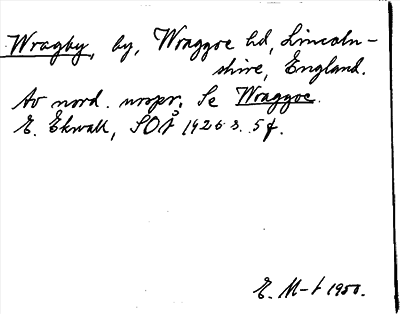 Wragby, by, Wraggoe hd, Lincoln-
shire, England.
Av nord. urspr. Se Wraggoe.
E. Ekwall, SOÅ 1926 s. 5 f.
E. M-t 1950.